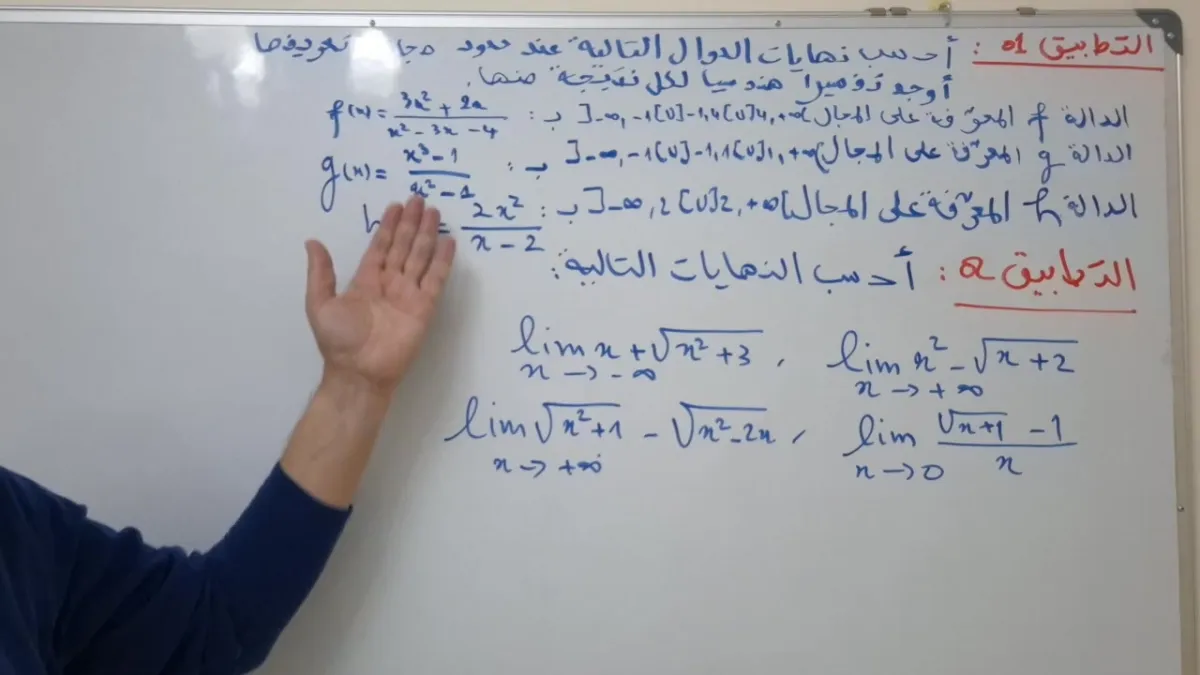 التطبيق 01: أحسب نهايات الدوال التالية عند حدود مجال تعريفها
أوجد تفسيرا هندسيا لكل نتيجة منها.
الدالة f المعرّفة على المجال ]-∞, -1[∪]-1, 4[∪]4, +∞[ ب: f(x) = (3x² + 2x)/(x² - 3x - 4)
الدالة g المعرّفة على المجال ]-∞, -1[∪]-1, 1[∪]1, +∞[ ب: g(x) = (x³ - 1)/(x² - 1)
الدالة h المعرّفة على المجال ]-∞, 2[∪]2, +∞[ ب: h = 2x²/(x - 2)
التطبيق 02: أحسب النهايات التالية:
lim x→-∞ x + √(x² + 3) , lim x→+∞ x² - √(x + 2)
lim x→+∞ √(x² + 1) - √(x² - 2x) , lim x→0 (√(x + 1) - 1)/x